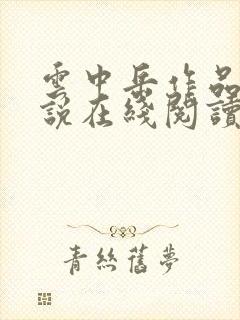 雲中岳作品
說在綫閱讀
青絲舊夢